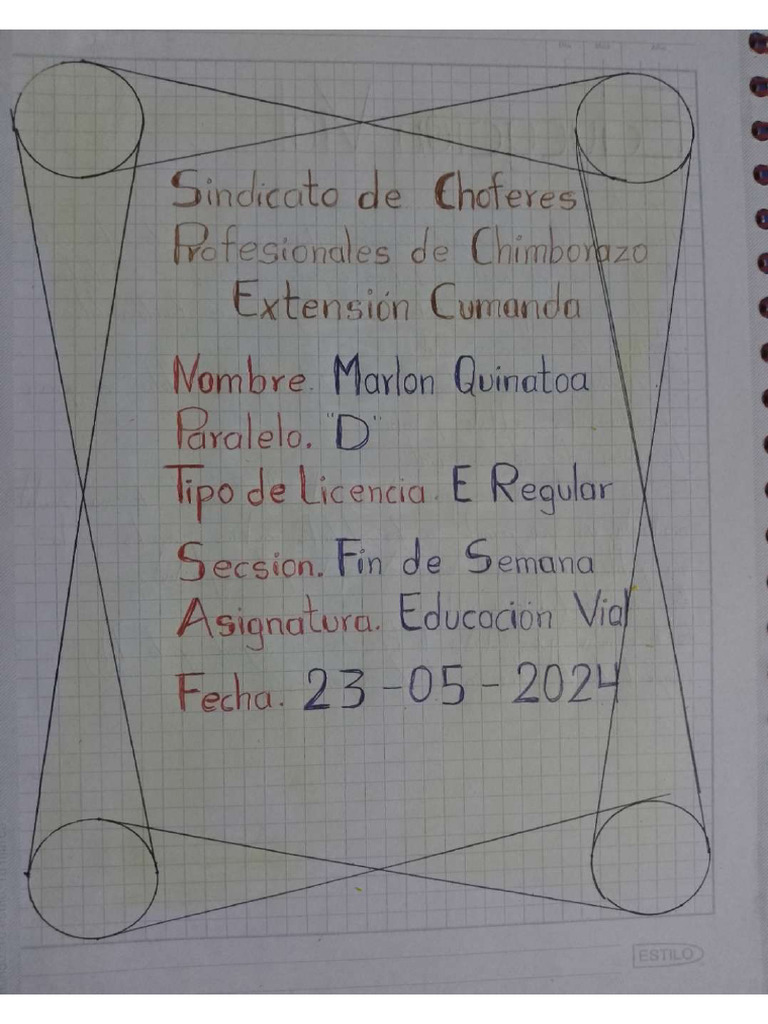 Sindicato de Choferes
Profesionales de Chimborazo
Extensión Cumanda
Nombre. Marlon Quinatoa
Paralelo. "D"
Tipo de Licencia. E Regular
Secsion. Fin de Semana
Asignatura. Educación Vial
Fecha. 23-05-2024
ESTILO